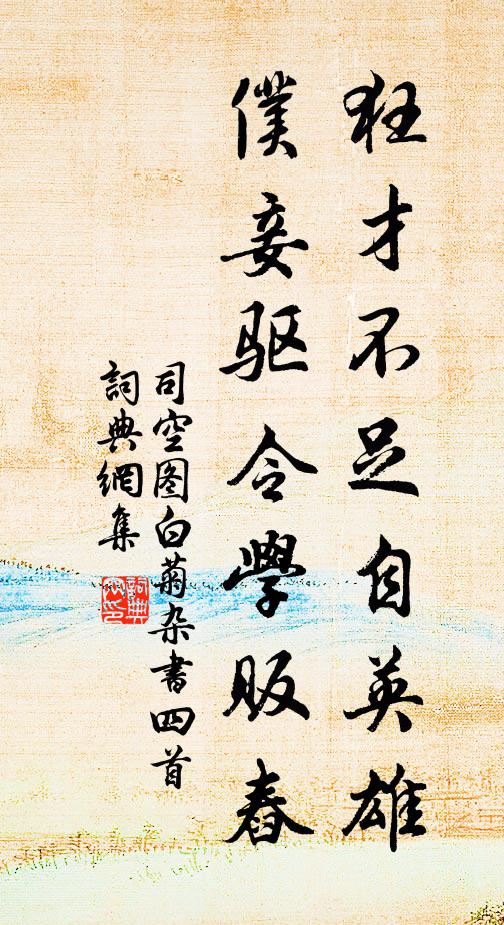 狂才不足自英雄
僕妾驱令學販舂
司空图白菊杂書四首
詞典網集